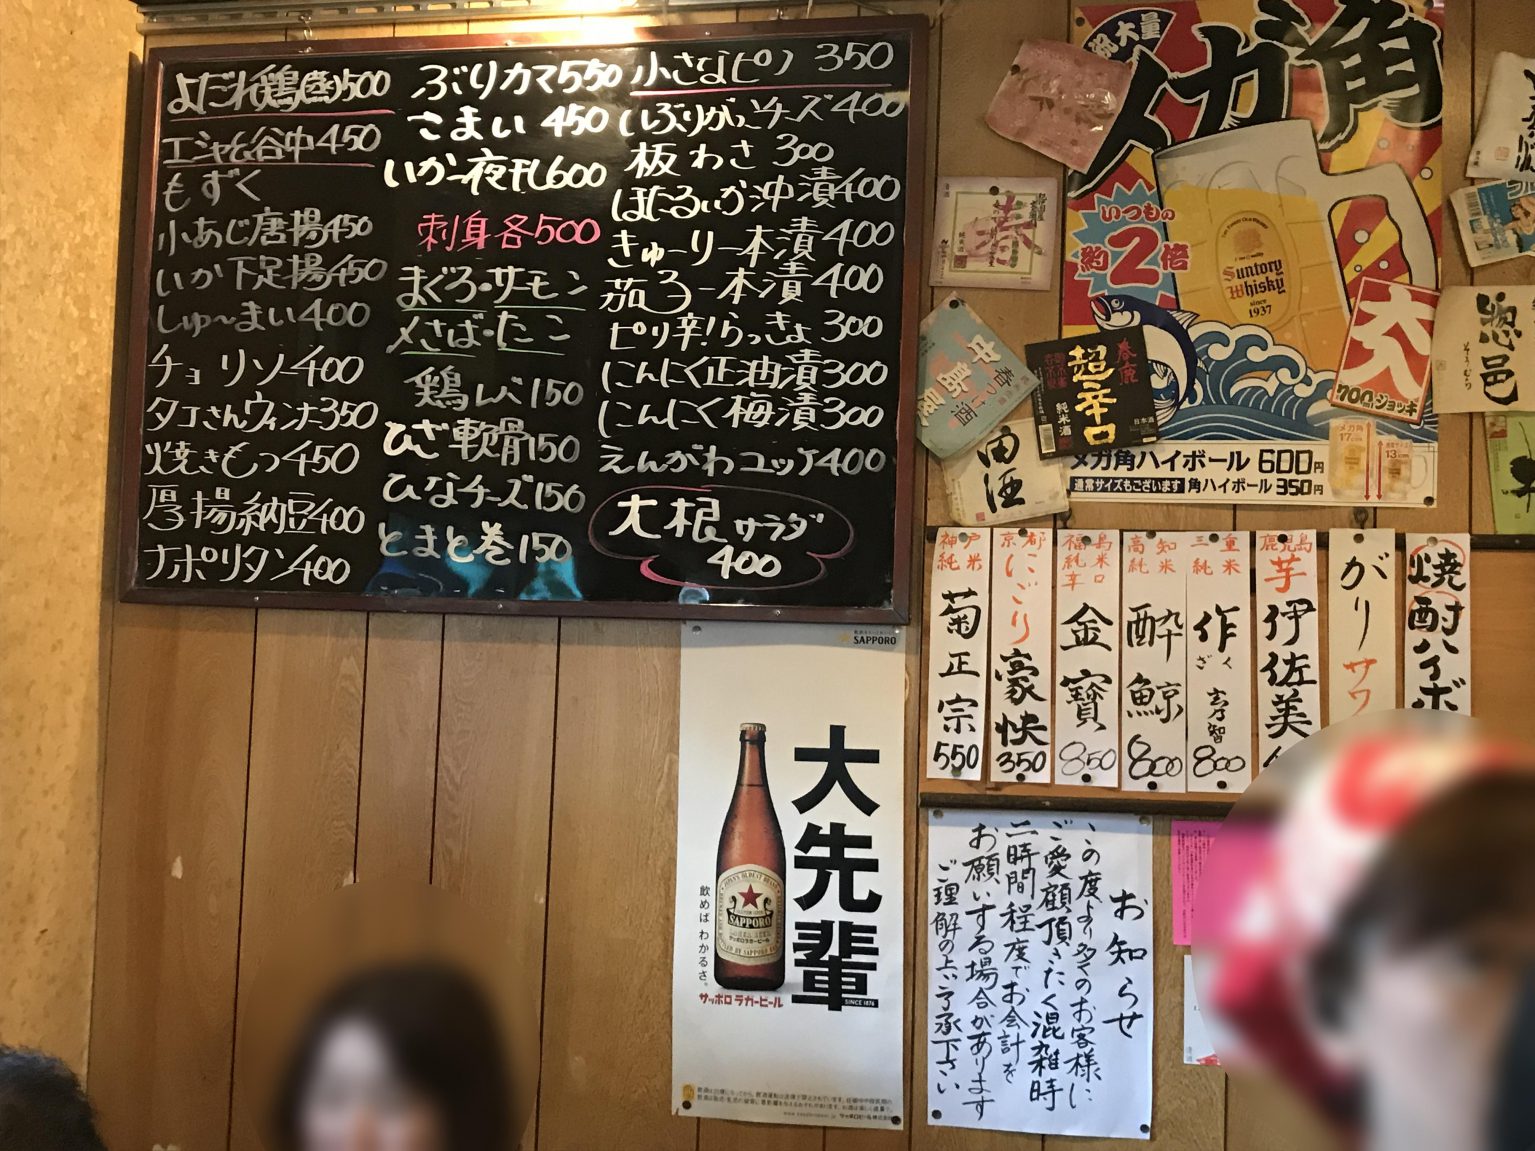 よだれ鶏(蒸)500
エシャと谷中450
もずく
小あじ唐揚450
いか下足揚450
しゅ〜まい400
チョリソー400
タコさんウィンナー350
焼きもつ450
厚揚納豆400
ナポリタン400
ぶりカマ550
こまい 450
いか一夜干し600
刺身各500
まぐろ・サーモン
〆さば・たこ
鶏レバ150
ひざ軟骨150
ひなチーズ150
とまと巻150
小さなピノ 350
いぶりがっこチーズ400
板わさ 300
ほたるいか沖漬400
きゅーり一本漬400
茄子一本漬400
ピリ辛!らっきょ300
にんにく正油漬300
にんにく梅漬300
えんがわユッケ400
大根サラダ
400
御大量
メガ角
いつもの
約2倍
Suntory
Whisky
since
1937
大
700mlジョッキ
メガ角ハイボール 600円
通常サイズもございます 角ハイボール 350円
メガ角
17cm
13cm
春
純米酒
春鹿
超辛口
純米酒
日本酒
田酒
惣邑
そうむら
神戸
純米
菊正宗
550
京都
にごり
豪快
350
福島
純米
辛口
金寶
850
高知
純米
酔鯨
800
三重
純米
作
ざく
800
鹿児島
芋
伊佐美
がりサワ
焼酎ハイボ
SAPPORO
大先輩
SINCE 1876
飲めば わかるさ。
SAPPORO
サッポロ ラガービール
お知らせ
この度より多くのお客様に
ご愛顧頂きたく混雑時
二時間程度でお会計を
お願いする場合があります
ご理解の上ご了承下さい